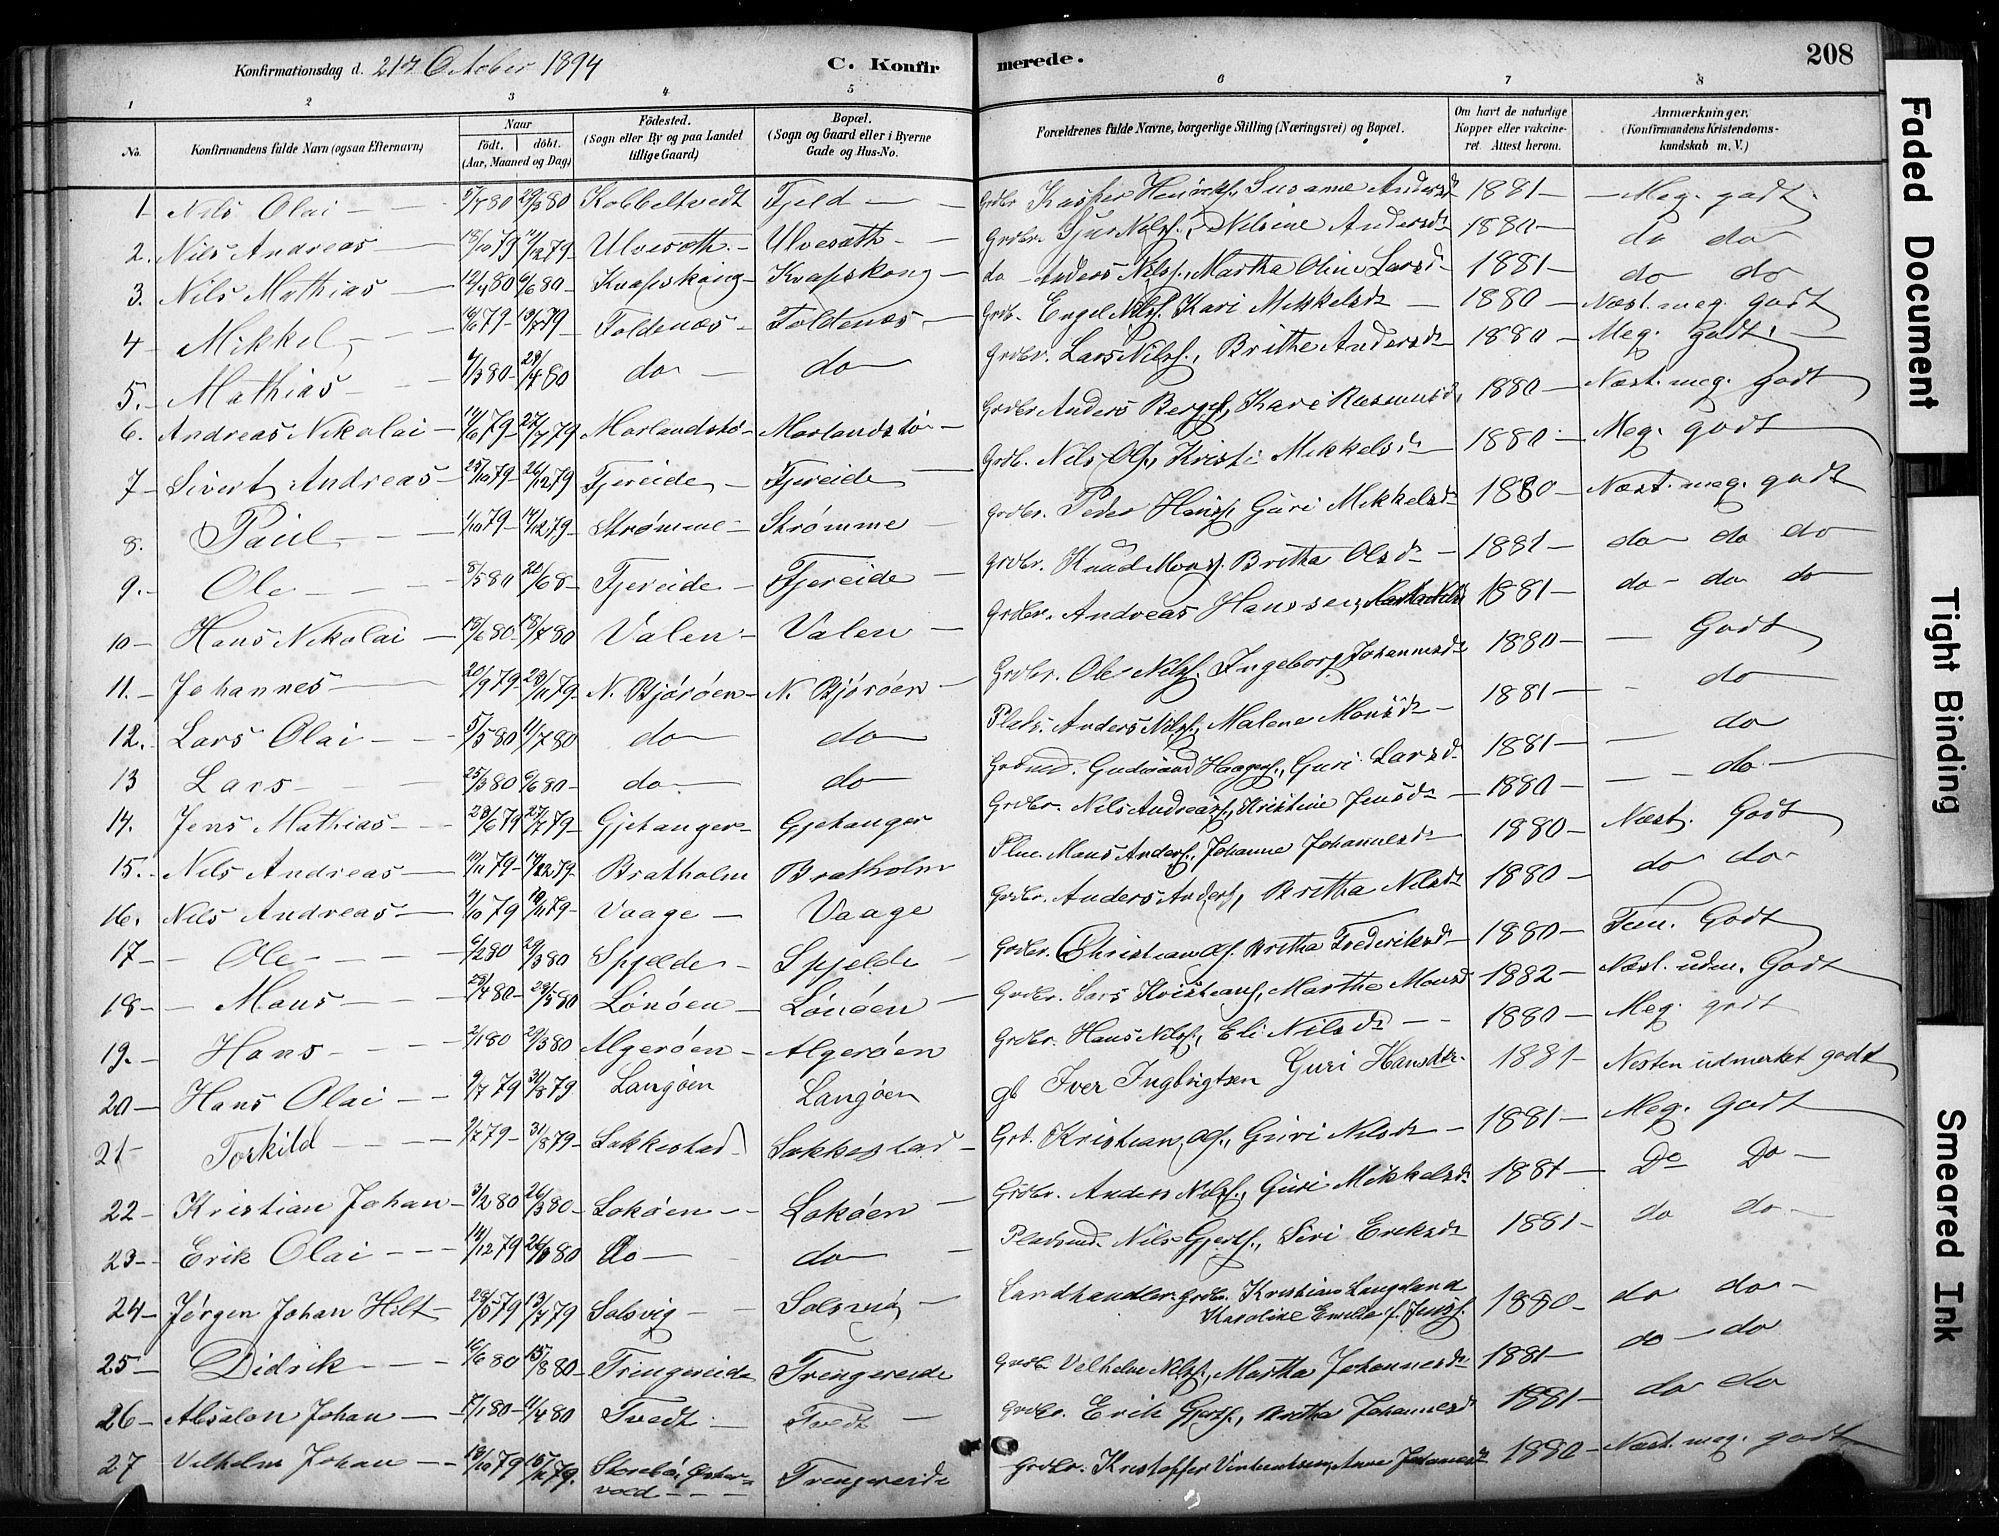 Konfirmationsdag d. 21de October 1894
C. Konfir
merede.
208
1 2 3 4 5 6 7 8
No.
Konfirmandens fulde Navn (ogsaa Efternavn)
Naar
født. døbt.
(Aar, Maaned og Dag)
Fødested.
(Sogn eller By og paa Landet
tillige Gaard)
Bopæl.
(Sogn og Gaard eller i Byerne
Gade og Hus-No.
Forældrenes fulde Navne, borgerlige Stilling (Næringsvei) og Bopæl.
Om havt de naturlige
Kopper eller vakcine-
ret. Attest herom.
Anmærkninger.
(Konfirmandens Kristendoms-
kundskab m. V.)
1 Nils Olai 5/7 80 29/3 80 Kobbeltvedt Fjeld Grdbr Kasper Susanne Andersdt 1881 Meg. godt
2. Nils Andreas 13/10 79 79 Ulvesæth Ulvesæth Grdbr. Gjur Nilsf., Nilsine Andersdt 1880 do do
3. Nils Mathias 12/4 80 6/6 80 Knapskoug Knapskoug do Anders Nilsf., Martha Oline Larsdt 1881 do do
4 Mikkel 79 79 Foldenæs Foldenæs Grdb. Engel Nilsf. Kari Mikkelsdt 1880 Næst. meg. godt
5. Mathias 80 80 do do Grdbr. Lars Nilsf., Brithe Andersdt 1880 Meg. godt
6. Andreas Nikolai 79 27/7 79 Morlandstø Morlandstø Grdbr Anders Kari Rasmusd 1880 Næst. meg. godt
7 Sivert Andreas 25/10 79 26/12 79 Fjereide Fjereide Grdb. Nils Kristi Mikkelsdt 1880 Meg. godt
8. Paul 79 79 Strømme Strømme Grdbr. Peder Hansf. Guri Mikkelsdt 1880 Næst. meg. godt
9. Ole 8/5 80 20/6 8 Fjereide Fjereide Grdbr. Knud Monsf. Britha Olsdt 1881 do do do
10 Hans Nikolai 80 18/7 80 Valen Valen Grdbr. Andreas Hanssen, 1881 do do do
11. Johannes 20/9 79 23/11 79 N. Bjørøen N. Bjørøen Grdbr. Ole Nilsf. Ingeborg Johannesdt 1880 Godt
12. Lars Olai 5/5 80 11/7 80 do do Plads. Anders Nilsf., Malene Monsdt 1881 do
13 Lars 25/3 80 6/6 80 do do Gudmund Guri Larsd 1881 do
14. Jens Mathias 23/6 79 27/7 79 Gjetanger Gjetanger Grdbr. Nils Andreasf., Kristine Jensdt 1880 do
15. Nils Andreas 79 79 Bratholm Bratholm Mons Andersf., Johanne Johannesdt 1880 Næst. Godt
16. Nils Andreas 79 79 Vaage Vaage Grdbr. Anders Andersf, Britha Nilsdt 1880 do do
17 Ole 6/2 80 29/3 80 Spjelde Spjelde Grdbr. Christian Britha Frederiksdt 1880 Godt
18 Mons 80 29/5 80 Lonøen Lonøen Grdbr. Lars Kristiansf, Marthe Monsd 1882 Næst. udm. Godt
19. Hans 2/1 80 29/3 80 Algerøen Algerøen Grdbr. Hans Nilsf., Eli Nilsdt 1880 Meg. godt
20 Hans Olai 9/7 79 31/8 79 Langøen Langøen gb Iver Ingbrigtsen Guri Hansdtr. 1881 Nesten udmerket godt
21 Torkild 9/7 79 31/8 79 Løkkestad Løkkestad Grd. Kristian Guri Nilsdt 1881 Meg. Godt
22 Kristian Johan 3/2 80 26/3 80 Lokøen Lokøen Grdbr. Anders Nilsf., Guri Mikkelsdt 1881 Do Do
23 Erik Olai 14/12 79 80 do do Pladsmd. Nils Gjertsf., Siri Eriksdt 1881 do do
24 Jørgen Johan Hilt 79 13/7 79 Solsvig Solsvig Landhandler Grdbr. Kristian Langeland
Karoline Emilie f. Jensf. 1880 do do
25 Didrik 16/6 80 15/8 80 Trengereide Trengereide Grdbr Velhelm Nilsf., Martha Johannesdt 1881 do do
26 Absalon Johan 7/1 80 11/4 80 Tvedt Tvedt Grdbr. Erik Gjertsf., Britha Johannesdt 1881 do do
27 Vilhelm Johan 18/10 79 79. Storebø, Øster-
vold Trengereide Grdbr. Kristoffer Anne Johannesdt 1880 Næst. meg. godt
Faded Document
Tight Binding
Smeared Ink